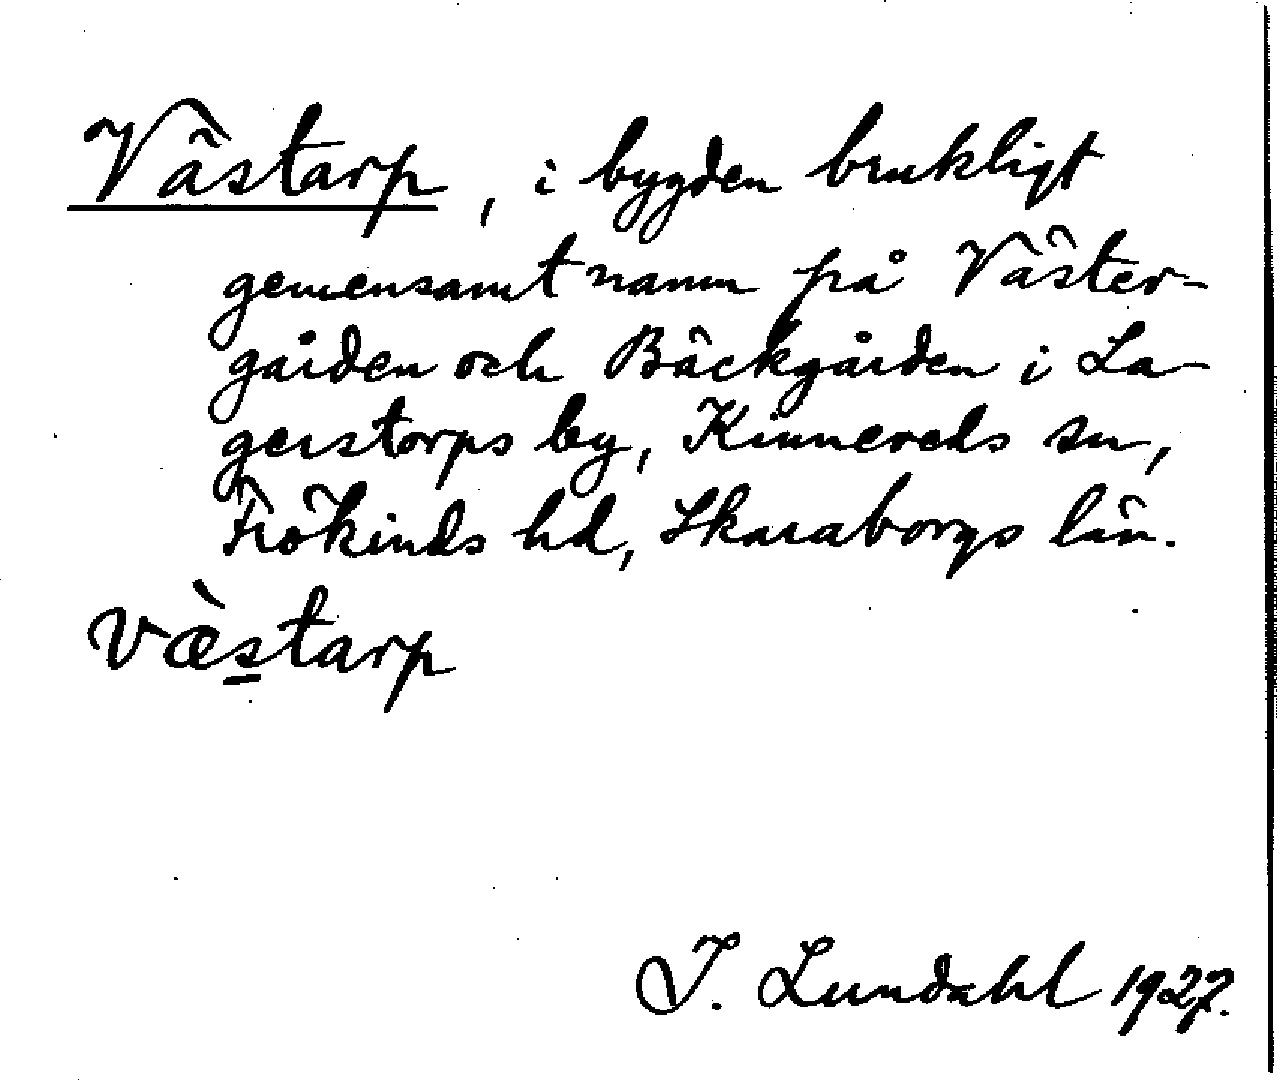 Västarp, i bygden brukligt
gemensamt namn på Väster-
gården och Bäckgården i La-
gerstorps by, Kinnereds sn,
Frökinds hd, Skaraborgs län.
væ̀s̲tarp
I. Lundahl 1927.